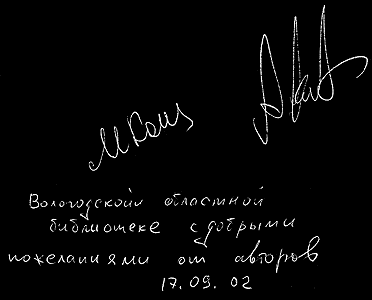 Вологодской областной
библиотеке с добрыми
пожеланиями от авторов
17.09.02